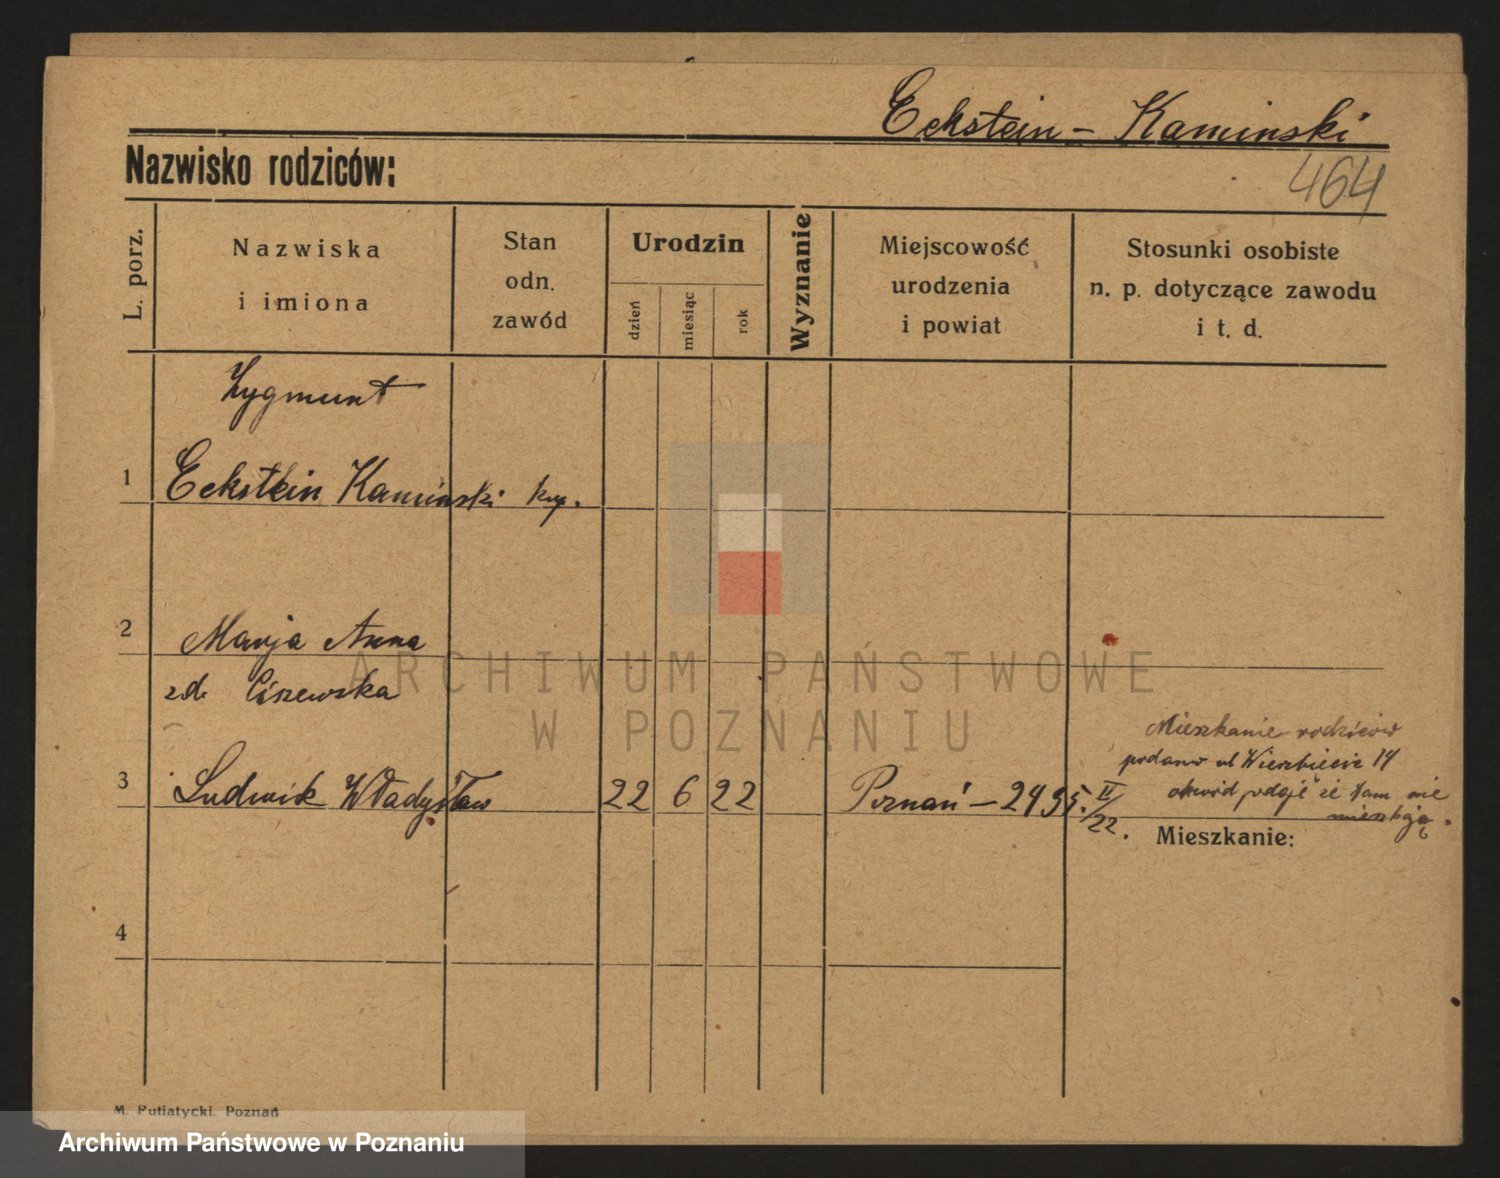 Eckstein - Kaminski
Nazwisko rodziców:
464
L. porz.
Nazwiska
i imiona
Stan
odn.
zawód
Urodzin
dzień
miesiąc
rok
Wyznanie
Miejscowość
urodzenia
i powiat
Stosunki osobiste
n. p. dotyczące zawodu
i t. d.
Zygmunt
1 Eckstein Kaminski kup.
2 Marja Anna
zd. Ciszewska
3 Ludwik Władysław 22 6 22 Poznań - 2435. II/22.
Mieszkanie rodziców
podano ul Wierzbięcice 14
obwód podaje że tam nie
mieszkają.
Mieszkanie:
4
M. Putiatycki, Poznań
ARCHIWUM PAŃSTWOWE
W POZNANIU
Archiwum Państwowe w Poznaniu